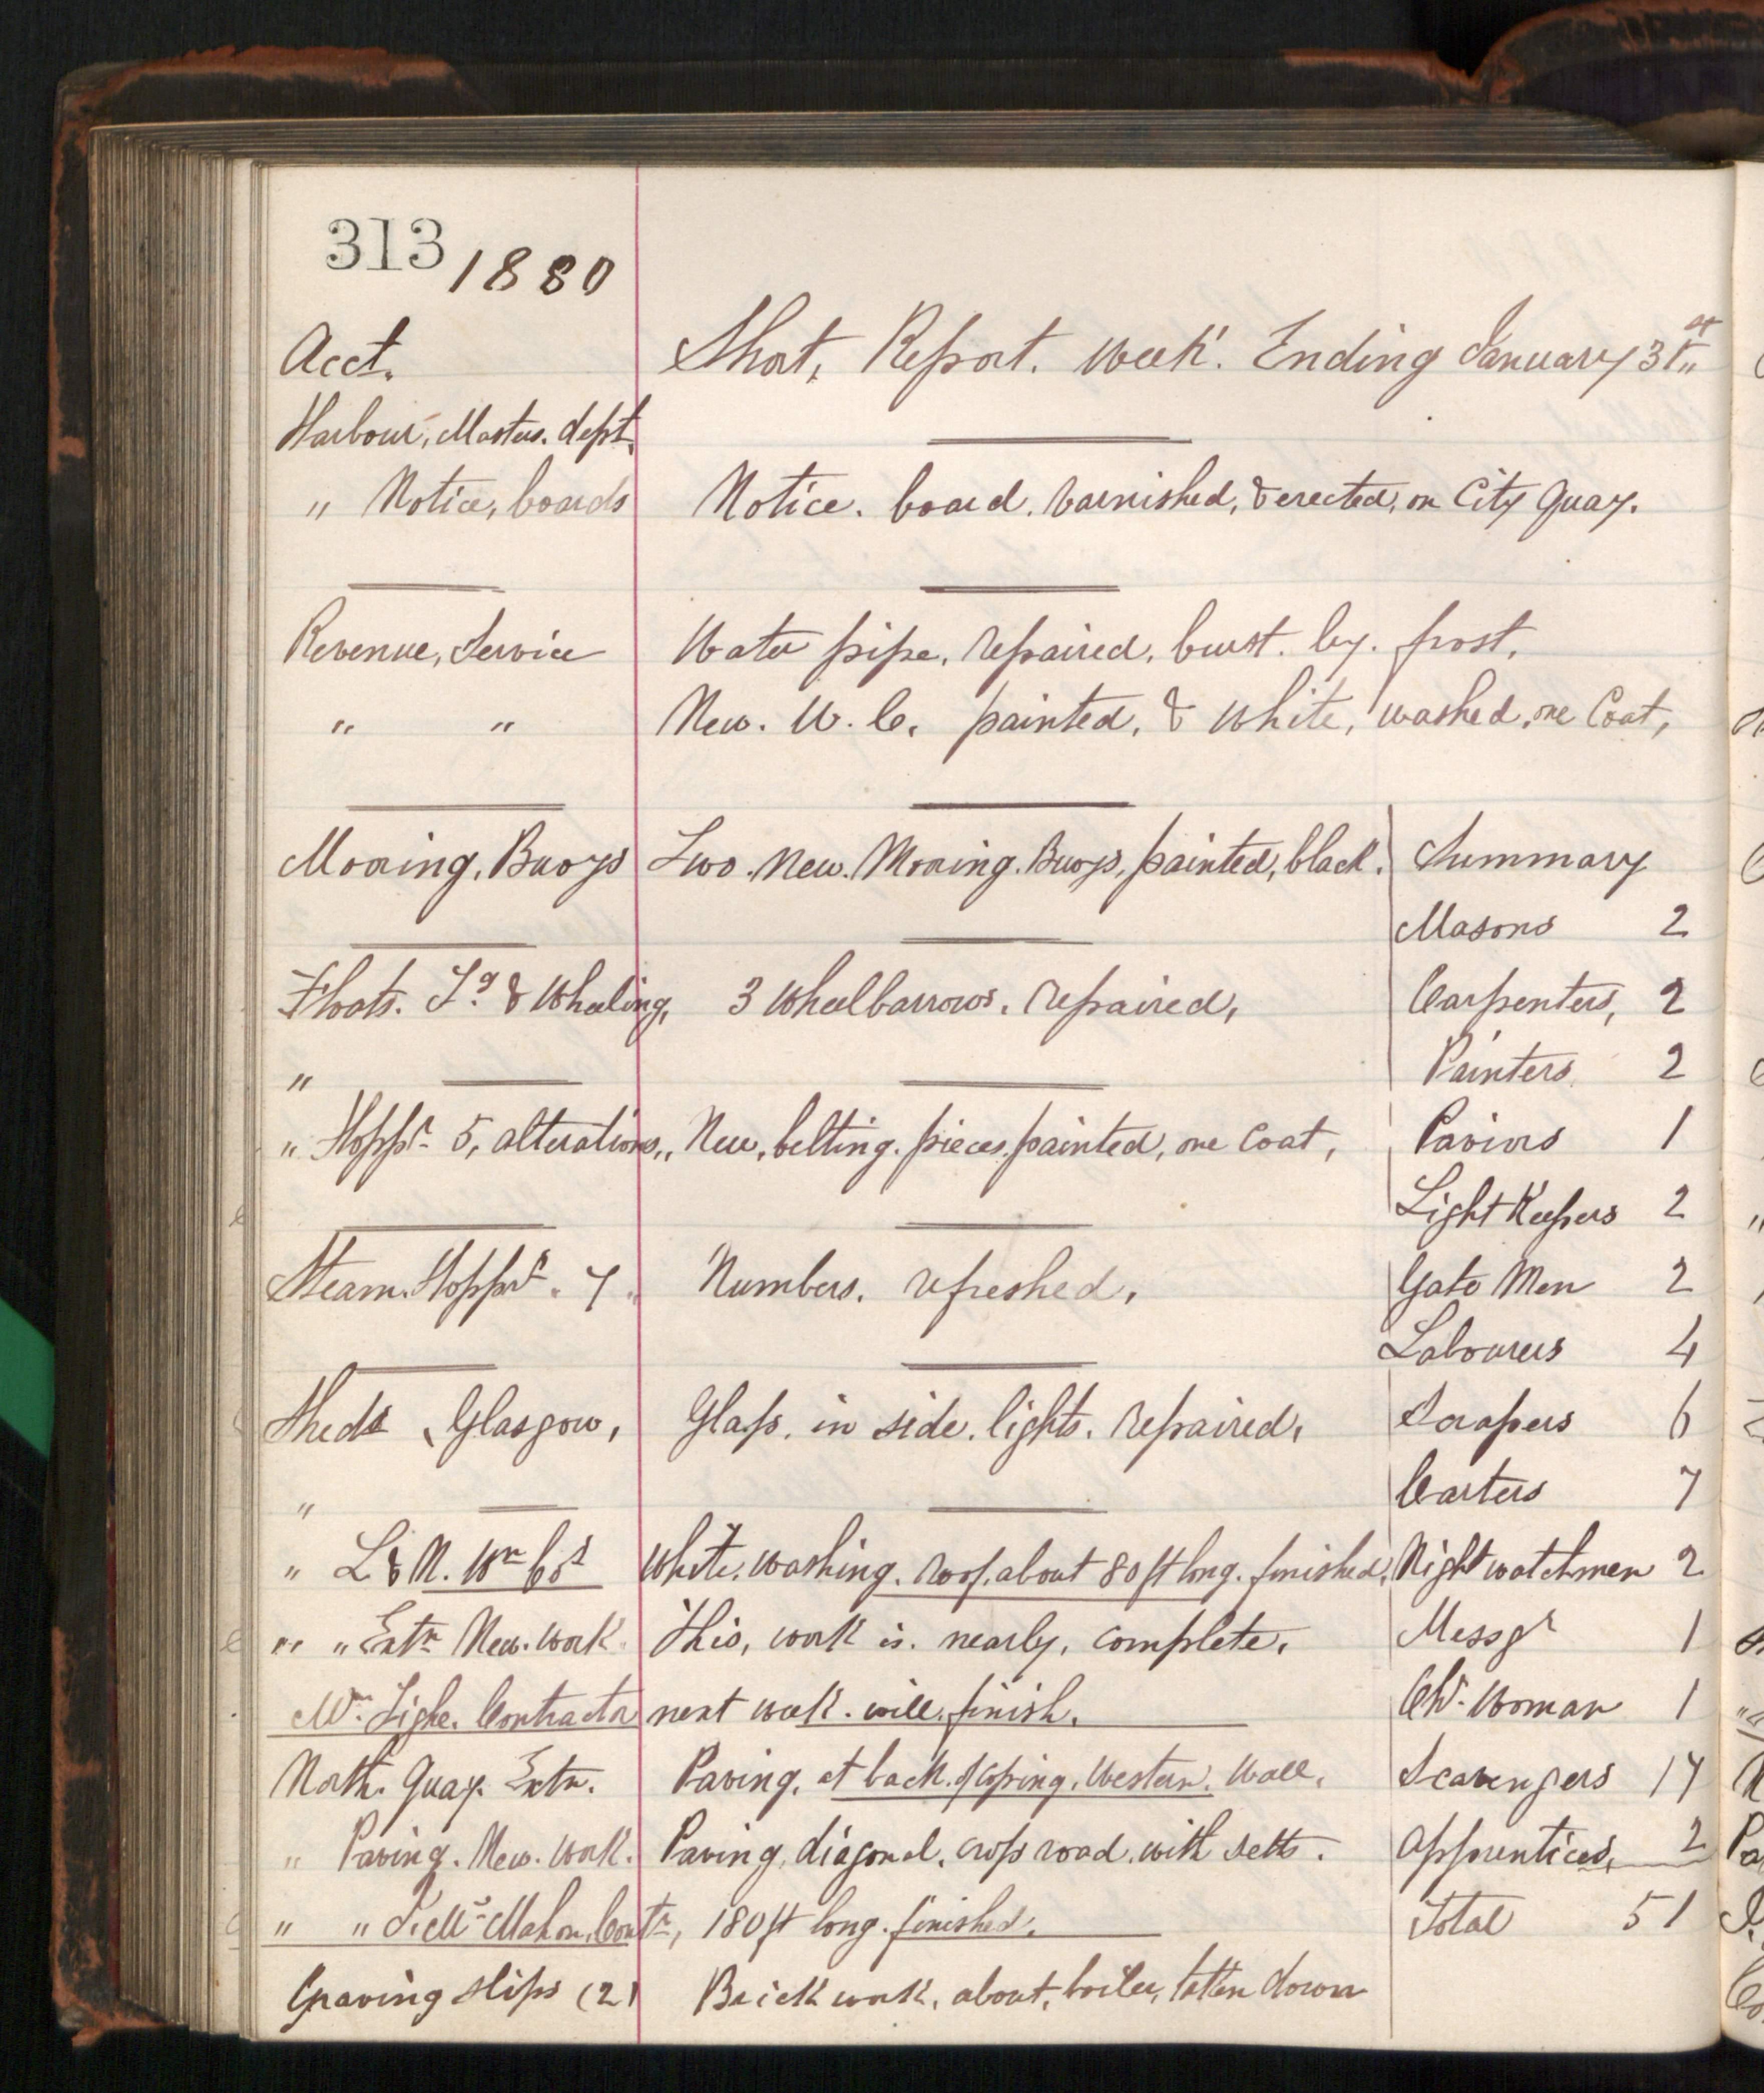 313 1880
Acct. Short, Report. Week. Ending January 31st
Harbour, Masters. dept.
" Notice, boards Notice. board. varnished, & erected, on City Quay.
Revenue, Service Water pipe, repaired, burst. by. frost,
" " New. W. C. painted, & White, washed, one Coat,
Mooring, Buoys Two. New. Mooring. Buoys, painted, black. Summary
Masons 2
Floats. Tg & Wheeling, 3 Wheelbarrows. repaired, Carpenters, 2
" Painters 2
" Hoppr 5, alterations,, New, belting. pieces painted, one Coat, Paviors 1
Light Keepers 2
Steam. Hoppr. 7. Numbers. refreshed, Gate Men 2
Labourers 4
Sheds, Glasgow, Glass. in side. lights. repaired, Scrapers 6
" Carters 7
" L & N. Wn Cos White, washing. roof. about 80 ft long. finished, Night watchmen 2
" " Extn New. Work. This, work is. nearly, complete, Messgr 1
Mr. Contractor next week. will. finish. Chr. Woman 1
North. Quay. Extn. Paving, at back. of coping, Western. Wall, Scavengers 17
" Paving. New. Work. Paving, diagonal, cross road. with setts. Apprentices, 2
" " Mc Mahon, Contr, 180 ft long. finished. Total 51
Graving Slips (2) Brick work, about, boiler, taken down